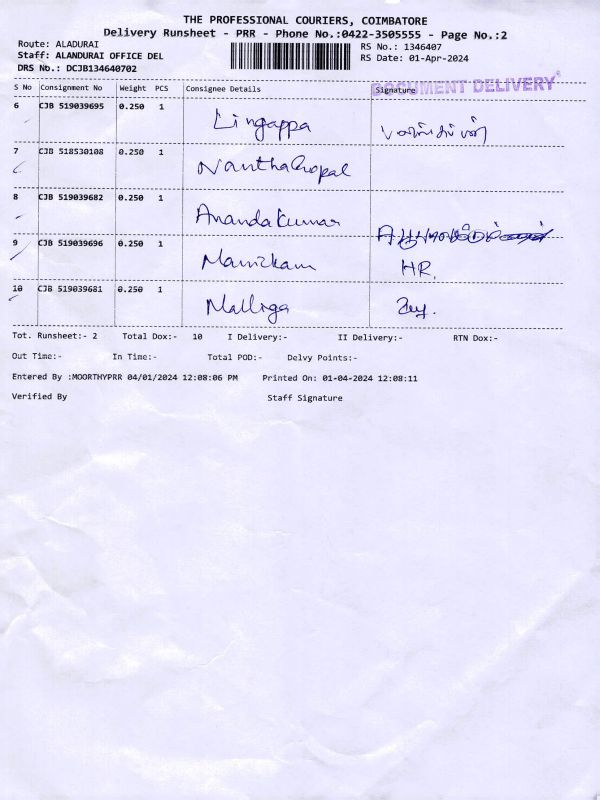 THE PROFESSIONAL COURIERS, COIMBATORE
Delivery Runsheet - PRR - Phone No.:0422-3505555 - Page No.:2
Route: ALADURAI
RS No.: 1346407
Staff: ALANDURAI OFFICE DEL
RS Date: 01-Apr-2024
DRS No.: DCJB134640702
DOCUMENT DELIVERY
S No Consignment No Weight PCS Consignee Details Signature
6 CJB 519039695 0.250 1 Lingappa
7 CJB 518530108 0.250 1 NanthaGopal
8 CJB 519039682 0.250 1 Anandakumar
9 CJB 519039696 0.250 1 Manickam HR.
10 CJB 519039681 0.250 1 Malliga
Tot. Runsheet:- 2 Total Dox:- 10 I Delivery:- II Delivery:- RTN Dox:-
Out Time:- In Time:- Total POD:- Delvy Points:-
Entered By :MOORTHYPRR 04/01/2024 12:08:06 PM Printed On: 01-04-2024 12:08:11
Verified By Staff Signature